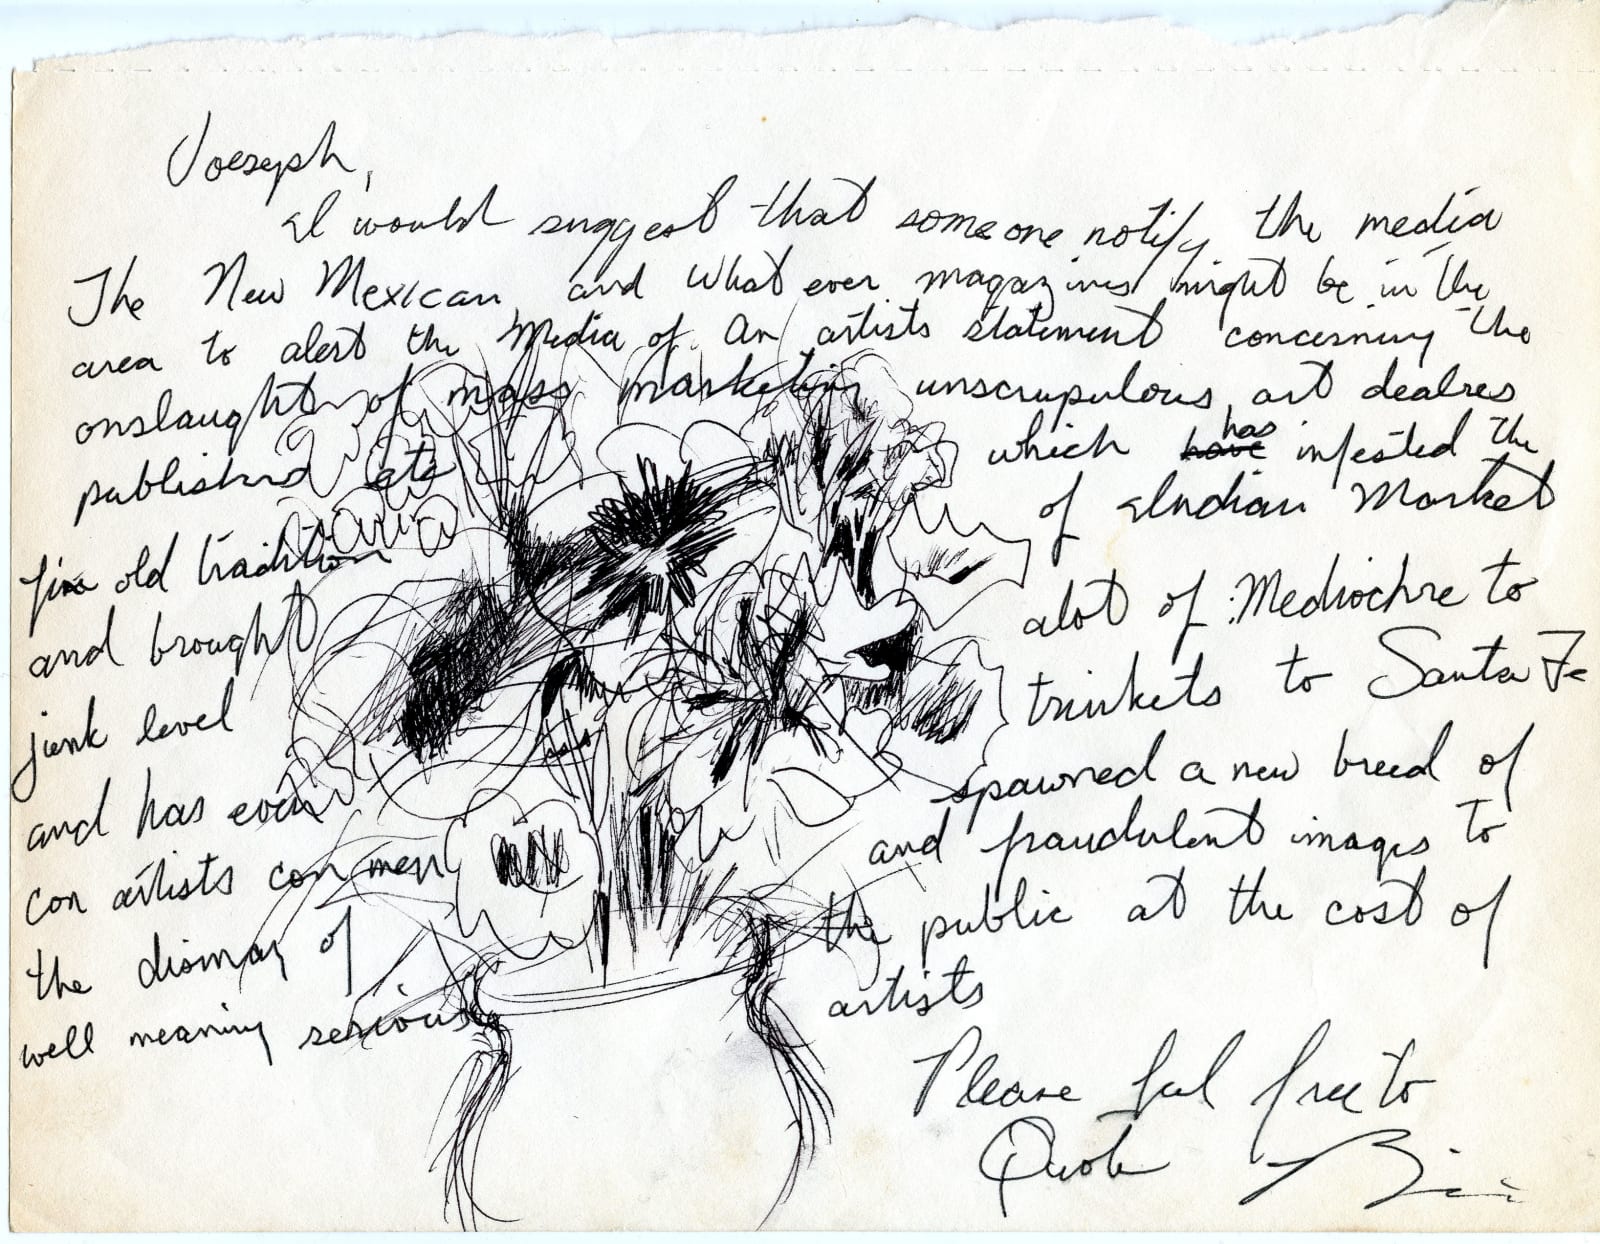 Joeseph,
I would suggest that someone notify the media
The New Mexican and what ever magazines might be in the
area to alert the Media of An artists statement concerning the
onslaught of mass marketing unscrupulous art dealres
published etc which has infested the
fine old tradition of Indian Market
and brought alot of Mediochre to
junk level trinkets to Santa Fe
and has even spawned a new breed of
con artists con men and fraudulent images to
the dismay of the public at the cost of
well meaning serious artists
Please feel free to
Quote